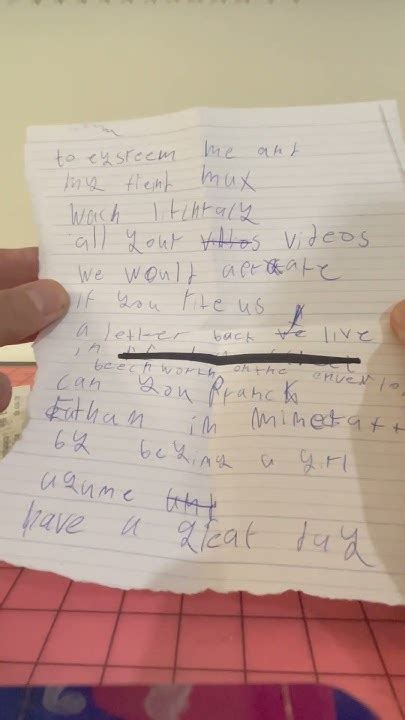 to eysreem me ant
my frent max
wach litchraly
all your videos
we woult acrcate
it you rite us
a letter back live
in
beechworth on the
can you pranck
Eathan in minecraft
by beying a girl
agane
have a great day